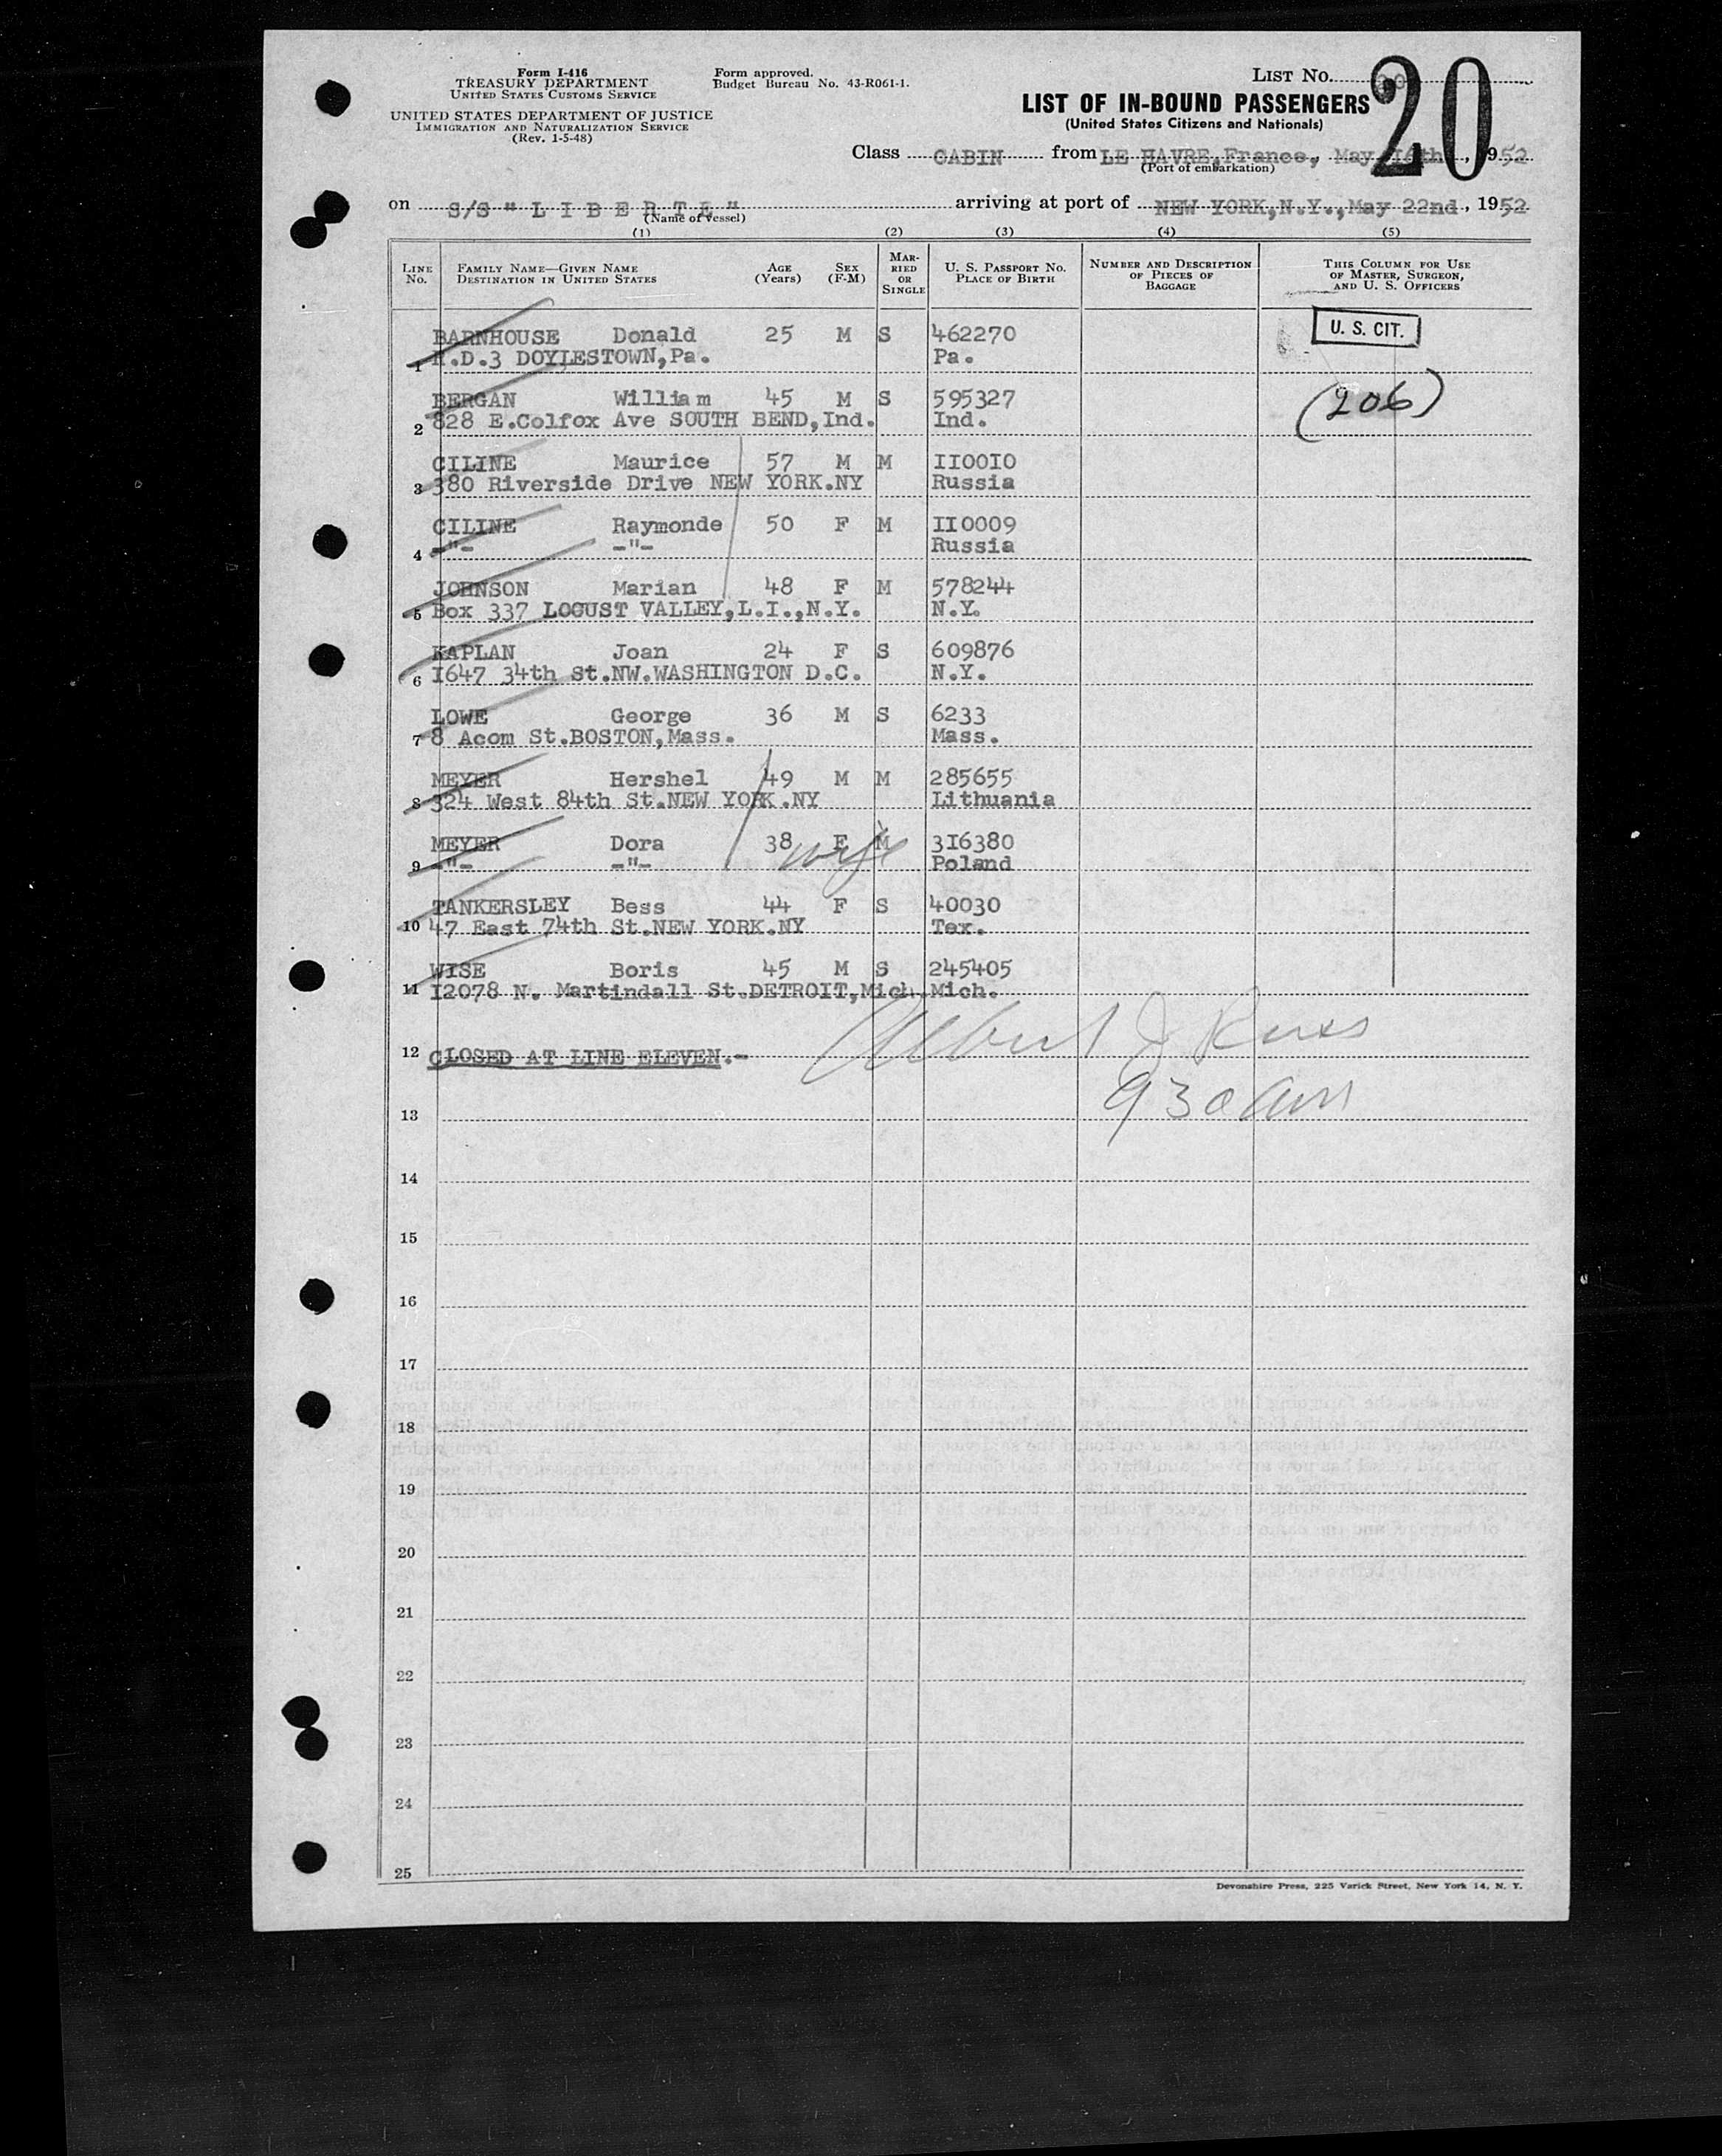 Form I-416
TREASURY DEPARTMENT
UNITED STATES CUSTOMS SERVICE
UNITED STATES DEPARTMENT OF JUSTICE
IMMIGRATION AND NATURALIZATION SERVICE
(Rev. 1-5-48)
Form approved.
Budget Bureau No. 43-R061-1.
LIST NO. 20
LIST OF IN-BOUND PASSENGERS
(United States Citizens and Nationals)
Class CABIN from LE HAVRE,France, May 16th, 1952
(Port of embarkation)
on S/S " L I B E R T E " arriving at port of NEW YORK,N.Y.,May 22nd, 1952
(Name of vessel)
(1) (2) (3) (4) (5)
LINE No. FAMILY NAME—GIVEN NAME DESTINATION IN UNITED STATES AGE (Years) SEX (F-M) MARRIED OR SINGLE U. S. PASSPORT NO. PLACE OF BIRTH NUMBER AND DESCRIPTION OF PIECES OF BAGGAGE THIS COLUMN FOR USE OF MASTER, SURGEON, AND U. S. OFFICERS
BARNHOUSE Donald 25 M S 462270 U. S. CIT.
1 R.D.3 DOYLESTOWN,Pa. Pa.
BERGAN William 45 M S 595327 (206)
2 828 E.Colfox Ave SOUTH BEND,Ind. Ind.
CILINE Maurice 57 M M II00I0
3 380 Riverside Drive NEW YORK.NY Russia
CILINE Raymonde 50 F M II0009
4 -"- -"- Russia
JOHNSON Marian 48 F M 578244
5 Box 337 LOCUST VALLEY,L.I.,N.Y. N.Y.
KAPLAN Joan 24 F S 609876
6 I647 34th St.NW.WASHINGTON D.C. N.Y.
LOWE George 36 M S 6233
7 8 Acom St.BOSTON,Mass. Mass.
MEYER Hershel 49 M M 285655
8 324 West 84th St.NEW YORK.NY Lithuania
MEYER Dora 38 F M 3I6380
wife
9 -"- -"- Poland
TANKERSLEY Bess 44 F S 40030
10 47 East 74th St.NEW YORK.NY Tex.
WISE Boris 45 M S 245405
11 I2078 N. Martindall St.DETROIT,Mich. Mich.
Albert J Russ
12 CLOSED AT LINE ELEVEN.-
930 am
13
14
15
16
17
18
19
20
21
22
23
24
25
Devonshire Press, 225 Varick Street, New York 14, N. Y.